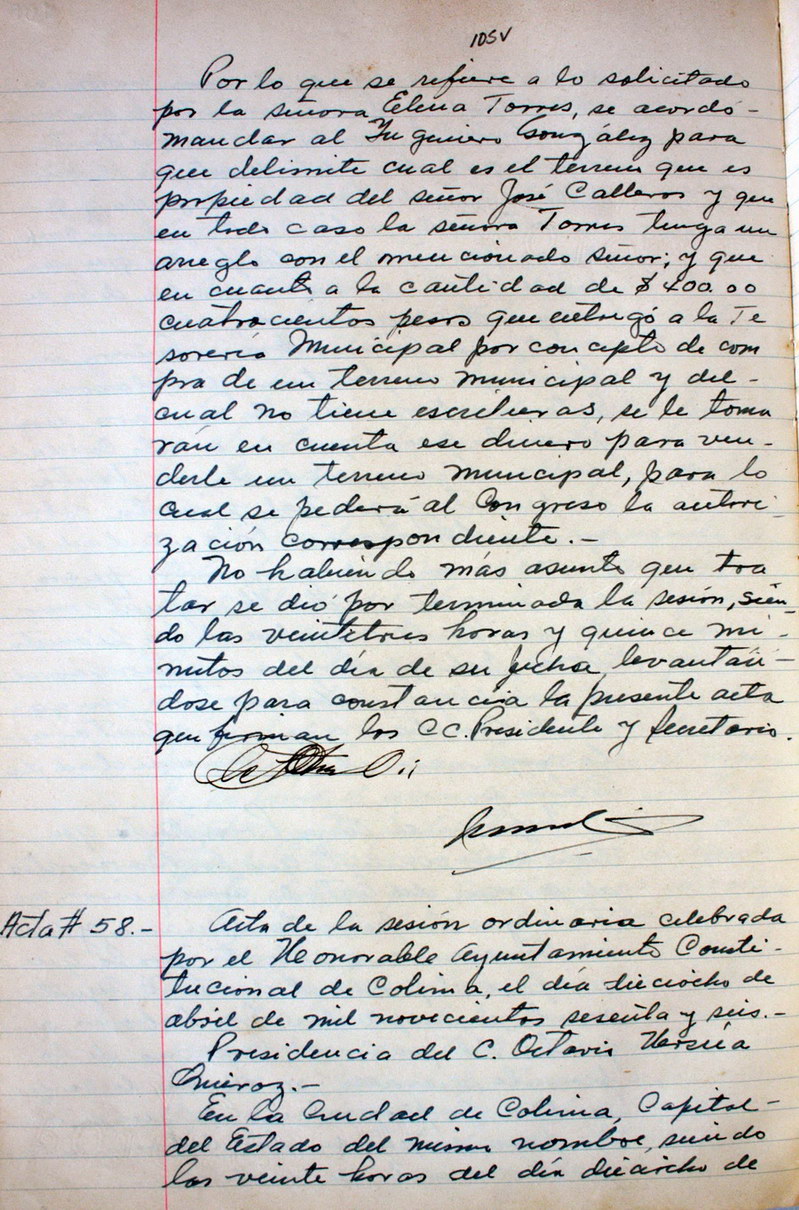 105V
Por lo que se refiere a lo solicitado
por la señora Elena Torres, se acordó-
mandar al Ingeniero González para
que delimite cual es el terreno que es
propiedad del señor José Calleros y que
en todo caso la señora Torres tenga un
arreglo con el mencionado señor; y que
en cuanto a la cantidad de $400.00
cuatrocientos pesos que entregó a la Te
sorería Municipal por concepto de com
pra de un terreno municipal y del-
cual no tiene escrituras, se le toma
rán en cuenta ese dinero para ven-
derle un terreno municipal, para lo
cual se pedirá al Congreso la autori-
zación correspondiente.-
No habiendo más asunto que tra
tar se dió por terminada la sesión, sien-
do las veintitres horas y quince mi-
nutos del día de su fecha, levantán-
dose para constancia la presente acta
que firman los CC. Presidente y Secretario.
Acta # 58.-
Acta de la sesión ordinaria celebrada
por el Honorable Ayuntamiento Consti-
tucional de Colima, el día dieciocho de
abril de mil novecientos sesenta y seis.-
Presidencia del C. Octavio
En la Ciudad de Colima, Capital-
del Estado del mismo nombre, siendo
las veinte horas del día dieciocho de